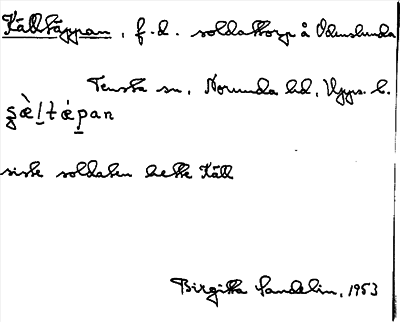 Källtäppan, f.d. soldattorp å Odenslunda
Tensta sn, Norunda hd, Upps. l.
siste soldaten hette Käll
Birgitta Sandelin, 1953